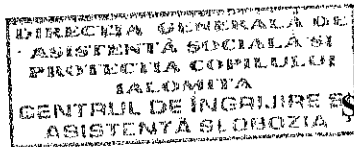 DIRECŢIA GENERALĂ DE
ASISTENŢĂ SOCIALĂ ŞI
PROTECŢIA COPILULUI
IALOMIŢA
CENTRUL DE ÎNGRIJIRE Ş
ASISTENŢĂ SLOBOZIA